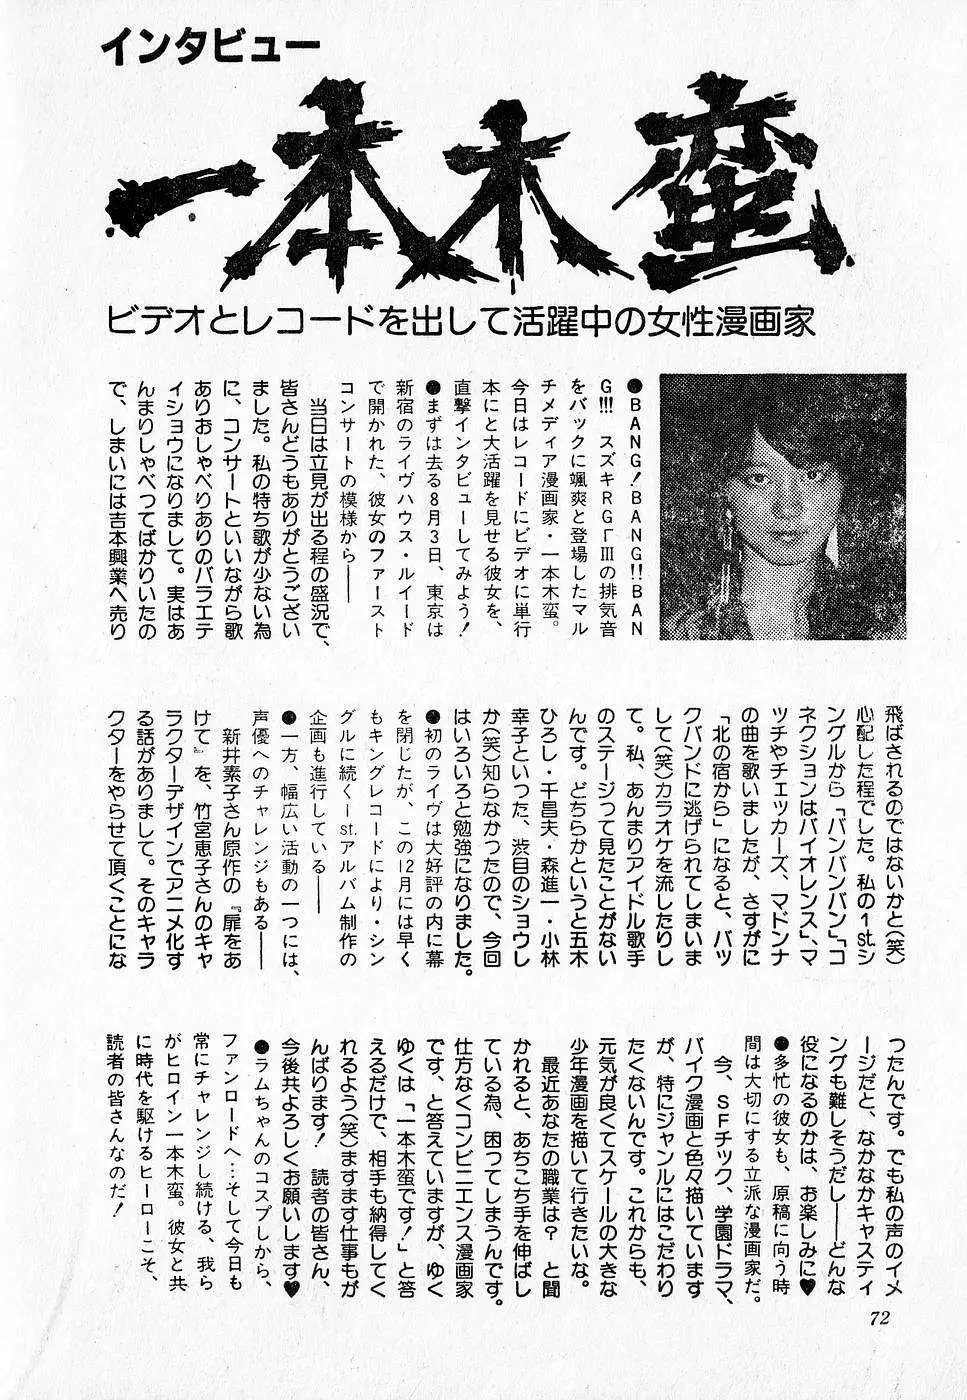 インタビュー
一本木蛮
ビデオとレコードを出して活躍中の女性漫画家
●BANG!BANG!!BAN
G!!!　スズキRGΓⅢの排気音
をバックに颯爽と登場したマル
チメディア漫画家・一本木蛮。
今日はレコードにビデオに単行
本にと大活躍を見せる彼女を、
直撃インタビューしてみよう!
●まずは去る8月3日、東京は
新宿のライヴハウス・ルイード
で開かれた、彼女のファースト
コンサートの模様から──
　当日は立見が出る程の盛況で、
皆さんどうもありがとうござい
ました。私の持ち歌が少ない為
に、コンサートといいながら歌
ありおしゃべりありのバラエテ
ィショウになりまして。実はあ
んまりしゃべってばかりいたの
で、しまいには吉本興業へ売り
飛ばされるのではないかと(笑)
心配した程でした。私の1st.シ
ングルから「バンバンバン」「コ
ネクションはバイオレンス」、マ
ッチやチェッカーズ、マドンナ
の曲を歌いましたが、さすがに
「北の宿から」になると、バッ
クバンドに逃げられてしまいま
して(笑)カラオケを流したりし
て。私、あんまりアイドル歌手
のステージって見たことがない
んです。どちらかというと五木
ひろし・千昌夫・森進一・小林
幸子といった、渋目のショウし
か(笑)知らなかったので、今回
はいろいろと勉強になりました。
●初のライヴは大好評の内に幕
を閉じたが、この12月には早く
もキングレコードにより・シン
グルに続く1st.アルバム制作の
企画も進行している──
●一方、幅広い活動の一つには、
声優へのチャレンジもある──
　新井素子さん原作の『扉をあ
けて』を、竹宮恵子さんのキャ
ラクターデザインでアニメ化す
る話がありまして。そのキャラ
クターをやらせて頂くことにな
ったんです。でも私の声のイメ
ージだと、なかなかキャスティ
ングも難しそうだし──どんな
役になるのかは、お楽しみに♥
●多忙の彼女も、原稿に向う時
間は大切にする立派な漫画家だ。
　今、SFチック、学園ドラマ、
バイク漫画と色々描いています
が、特にジャンルにはこだわり
たくないんです。これからも、
元気が良くてスケールの大きな
少年漫画を描いて行きたいな。
　最近あなたの職業は?　と聞
かれると、あちこち手を伸ばし
ている為、困ってしまうんです。
仕方なくコンビニエンス漫画家
です、と答えていますが、ゆく
ゆくは「一本木蛮です!」と答
えるだけで、相手も納得してく
れるよう(笑)ますます仕事もが
んばります!　読者の皆さん、
今後共よろしくお願いします♥
●ラムちゃんのコスプレから、
ファンロードへ…そして今日も
常にチャレンジし続ける、我ら
がヒロイン一本木蛮。彼女と共
に時代を駆けるヒーローこそ、
読者の皆さんなのだ!
72